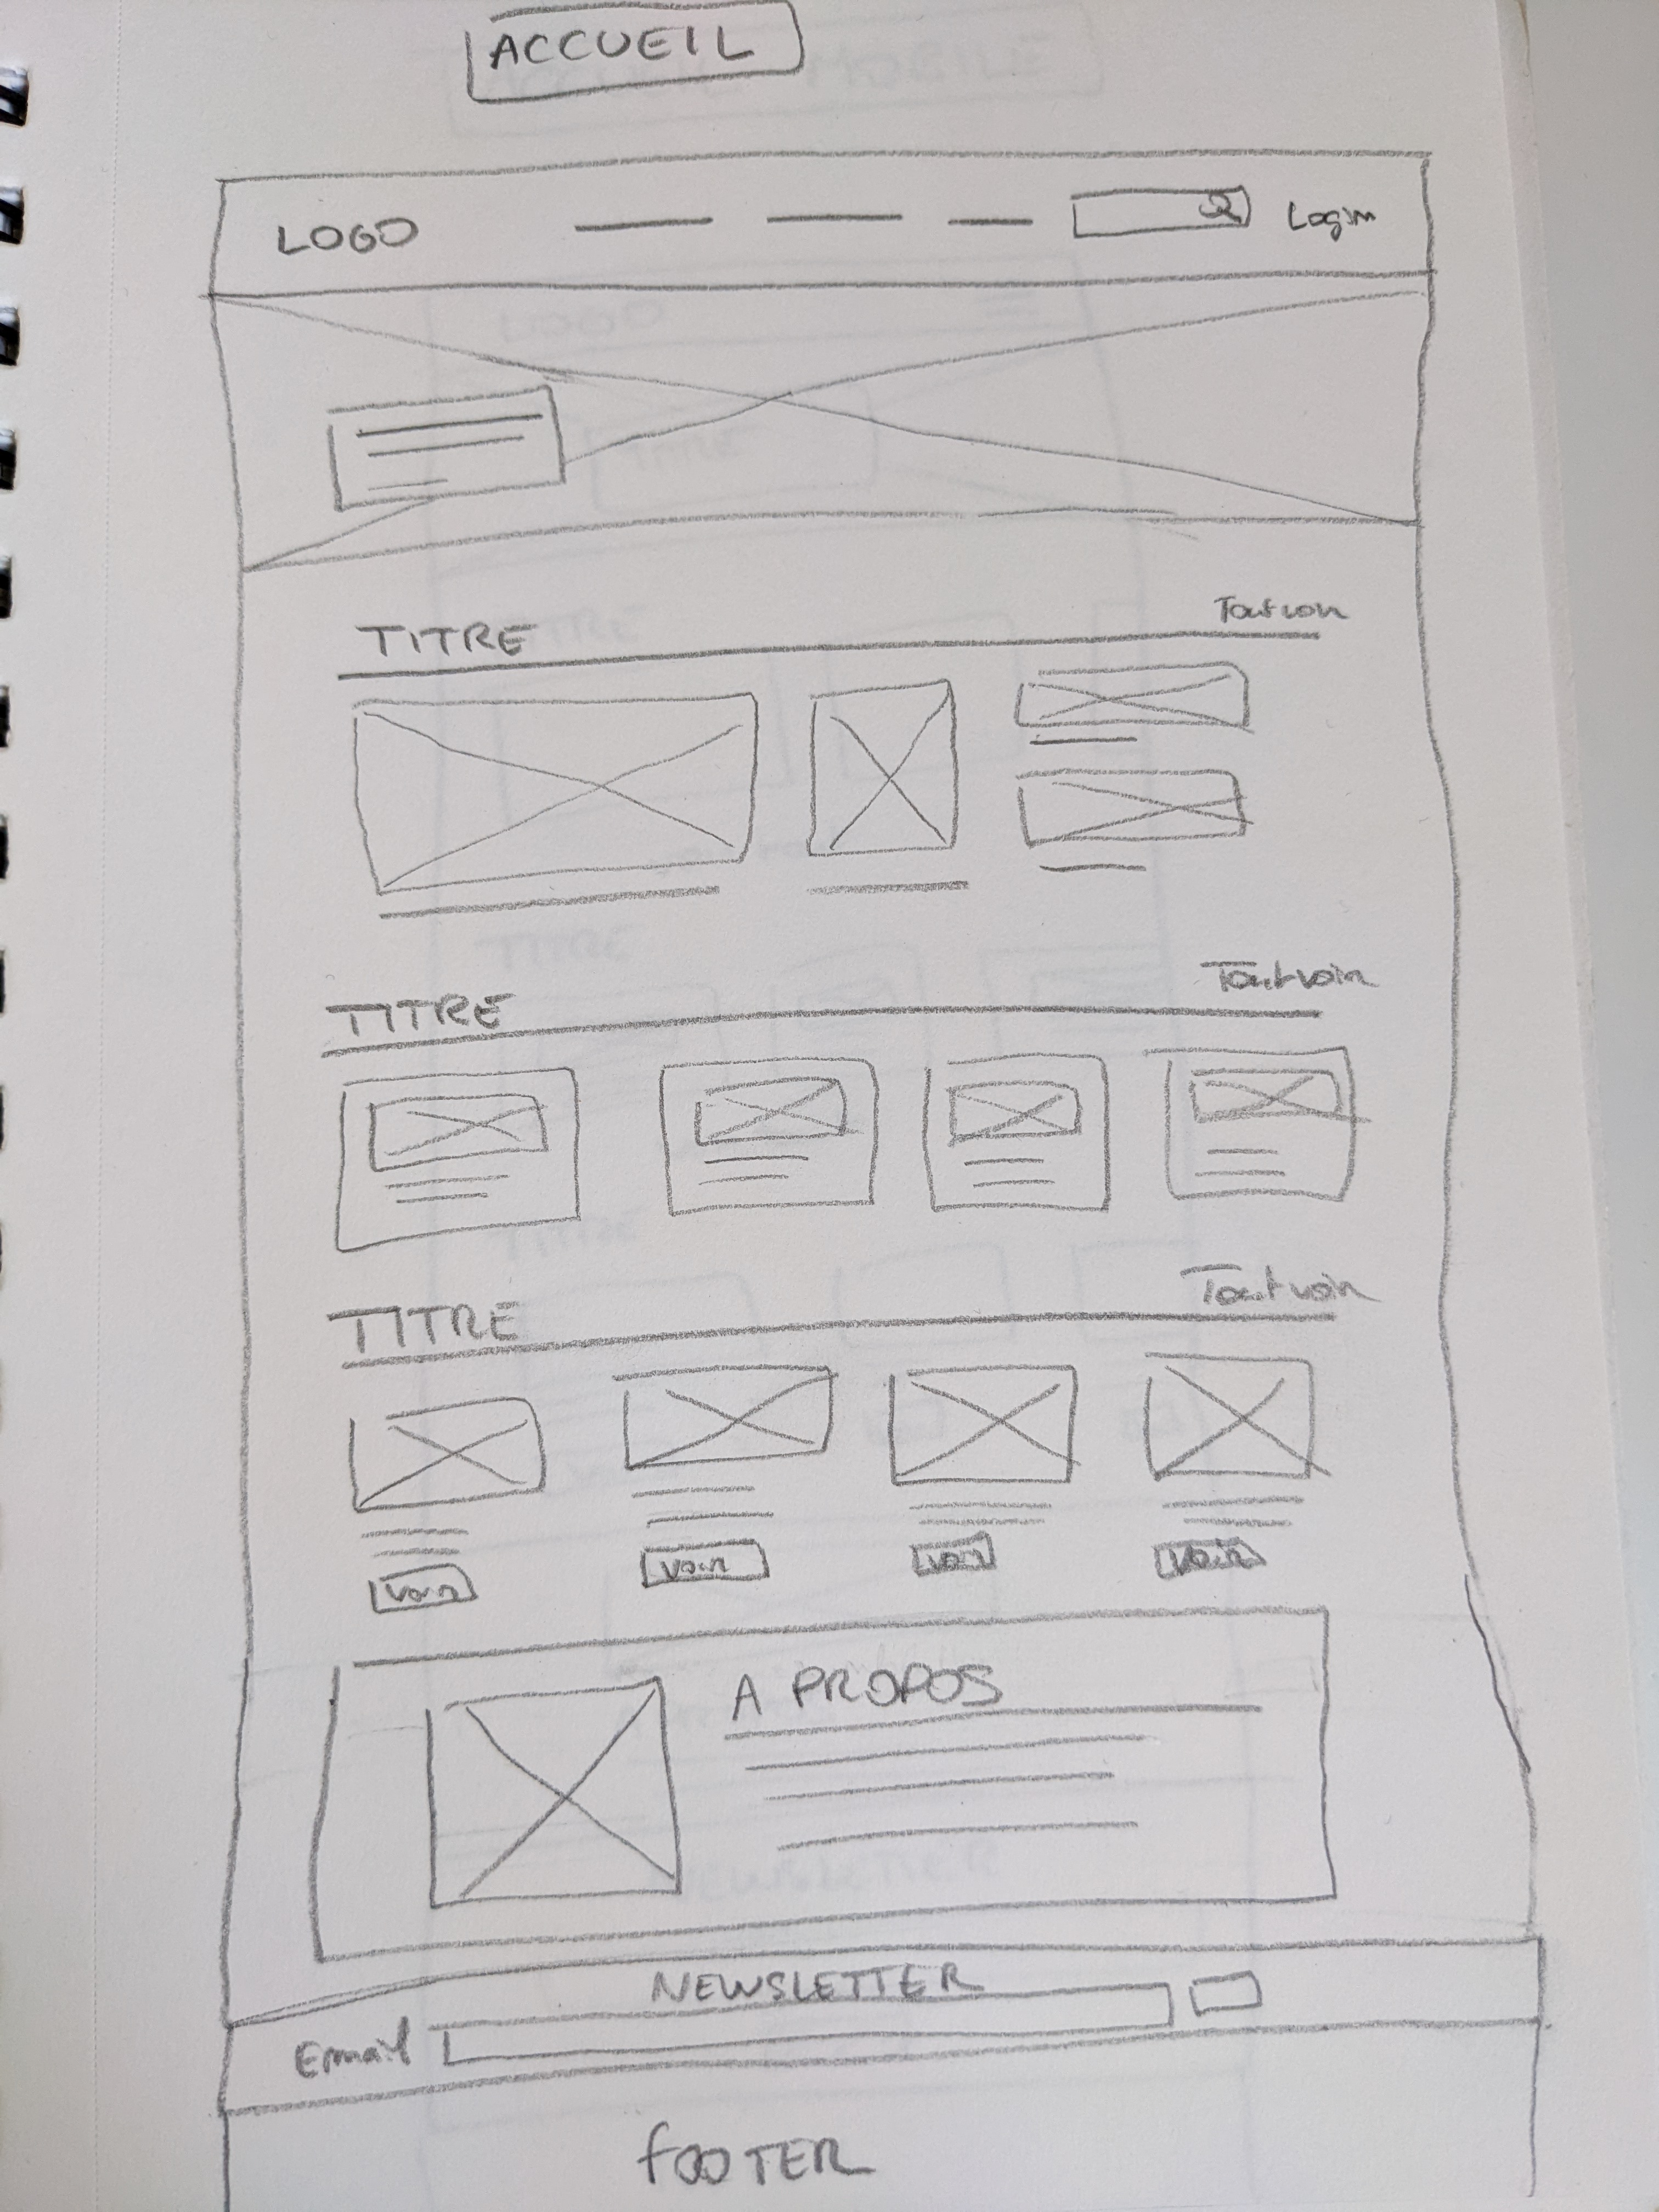 ACCUEIL
LOGO Login
TITRE Tout voir
TITRE Tout voir
TITRE Tout voir
Voir Voir Voir Voir
A PROPOS
NEWSLETTER
Email
FOOTER